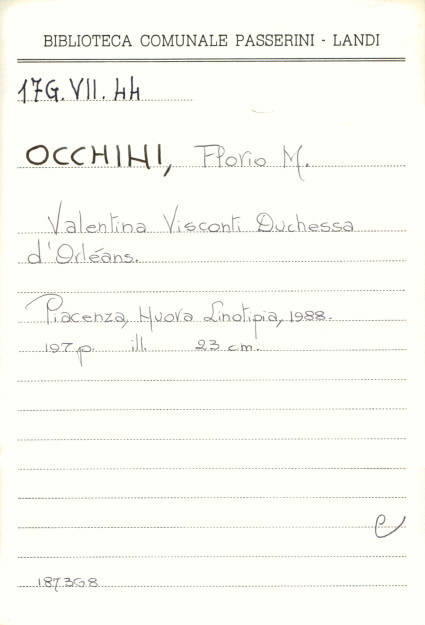 BIBLIOTECA COMUNALE PASSERINI - LANDI
17G.VII.44
OCCHINI, Florio M.
Valentina Visconti Duchessa
d'Orléans.
Piacenza, Nuova Linotipia, 1988.
197 p. ill. 23 cm.
e
187368